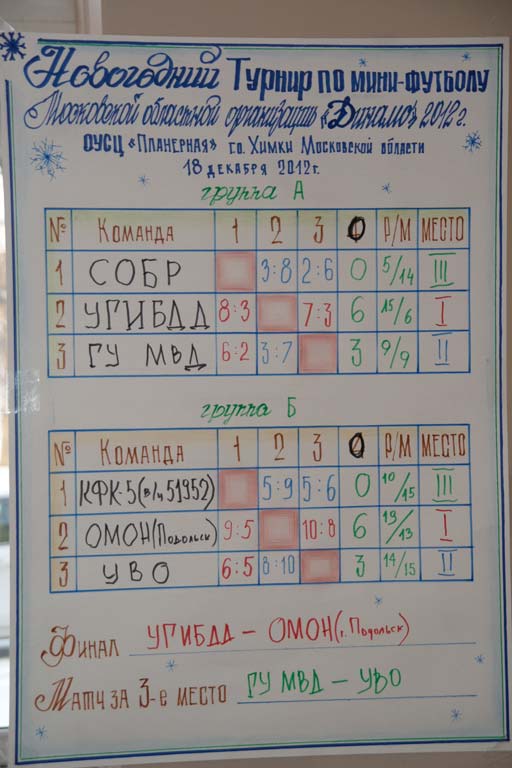 Новогодний Турнир по мини-футболу
Московской областной организации «Динамо» 2012 г.
ОУСЦ «Планерная» г.о. Химки Московской области
18 декабря 2012 г.
группа А
№ Команда 1 2 3 О Р/М МЕСТО
1 СОБР 3:8 2:6 0 5/14 III
2 УГИБДД 8:3 7:3 6 15/6 I
3 ГУ МВД 6:2 3:7 3 9/9 II
группа Б
№ Команда 1 2 3 О Р/М МЕСТО
1 КФК-5 (в/ч 51952) 5:9 5:6 0 10/15 III
2 ОМОН (Подольск) 9:5 10:8 6 19/13 I
3 УВО 6:5 8:10 3 14/15 II
Финал УГИБДД – ОМОН (г. Подольск)
Матч за 3-е место ГУ МВД – УВО